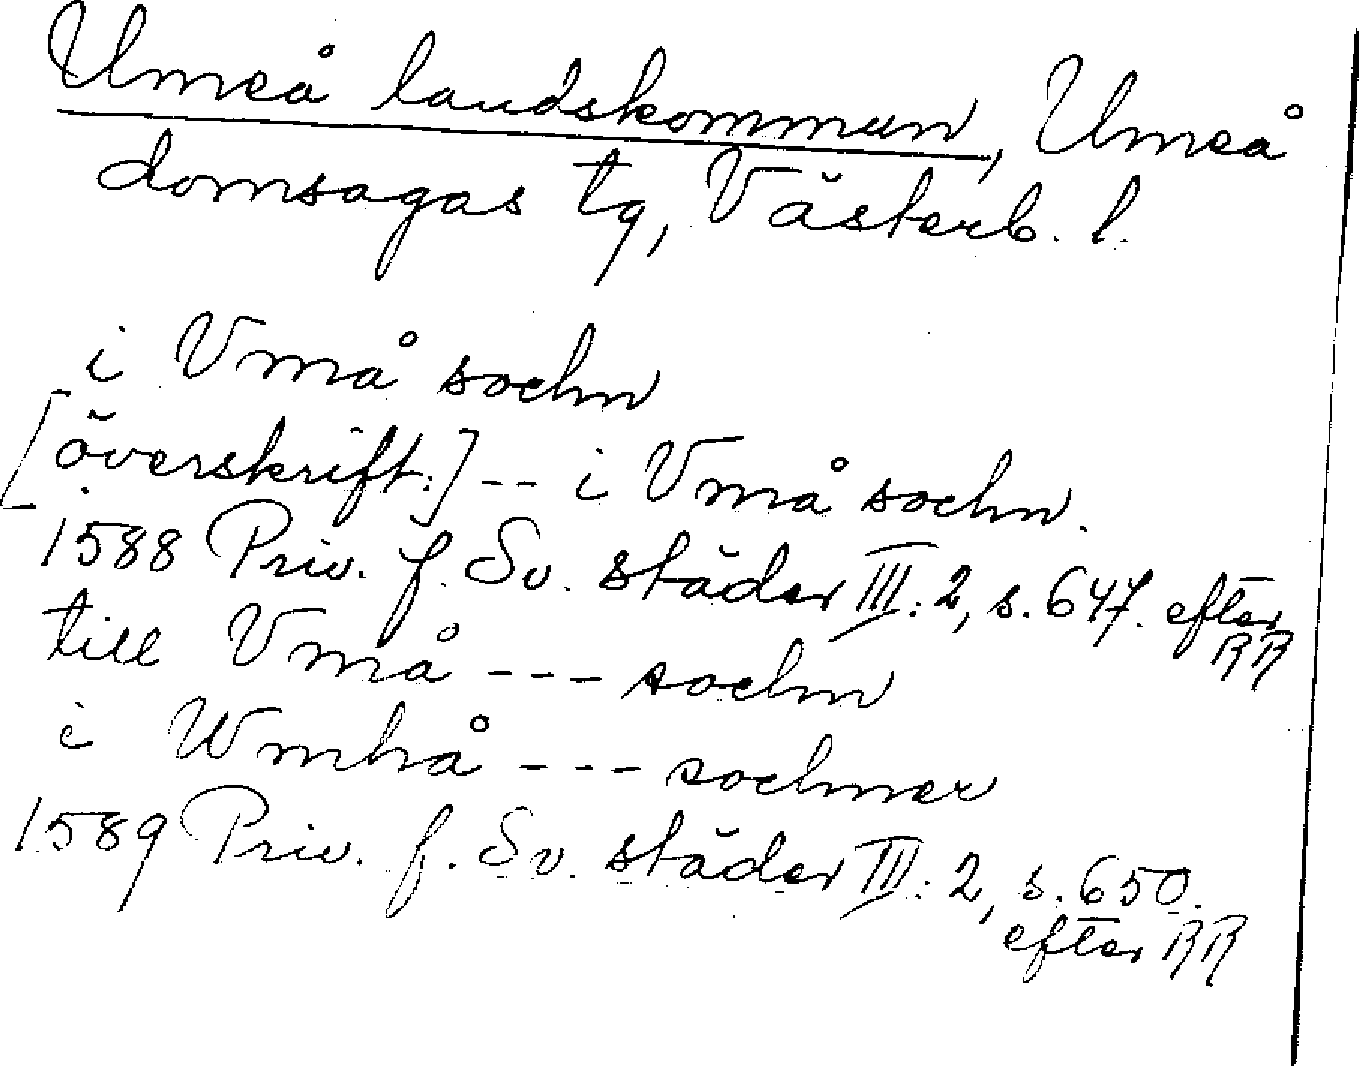 Umeå landskommun, Umeå
domsagas tg, Västerb. l.
i Vmå sochn
[överskrift:] -- i Vmå sochn.
1588 Priv. f. Sv. städer III: 2, s. 647. efter
RR
till Vmå --- sochn
i Wmhå --- sochner
1589 Priv. f. Sv. städer III: 2, s. 650.
efter RR